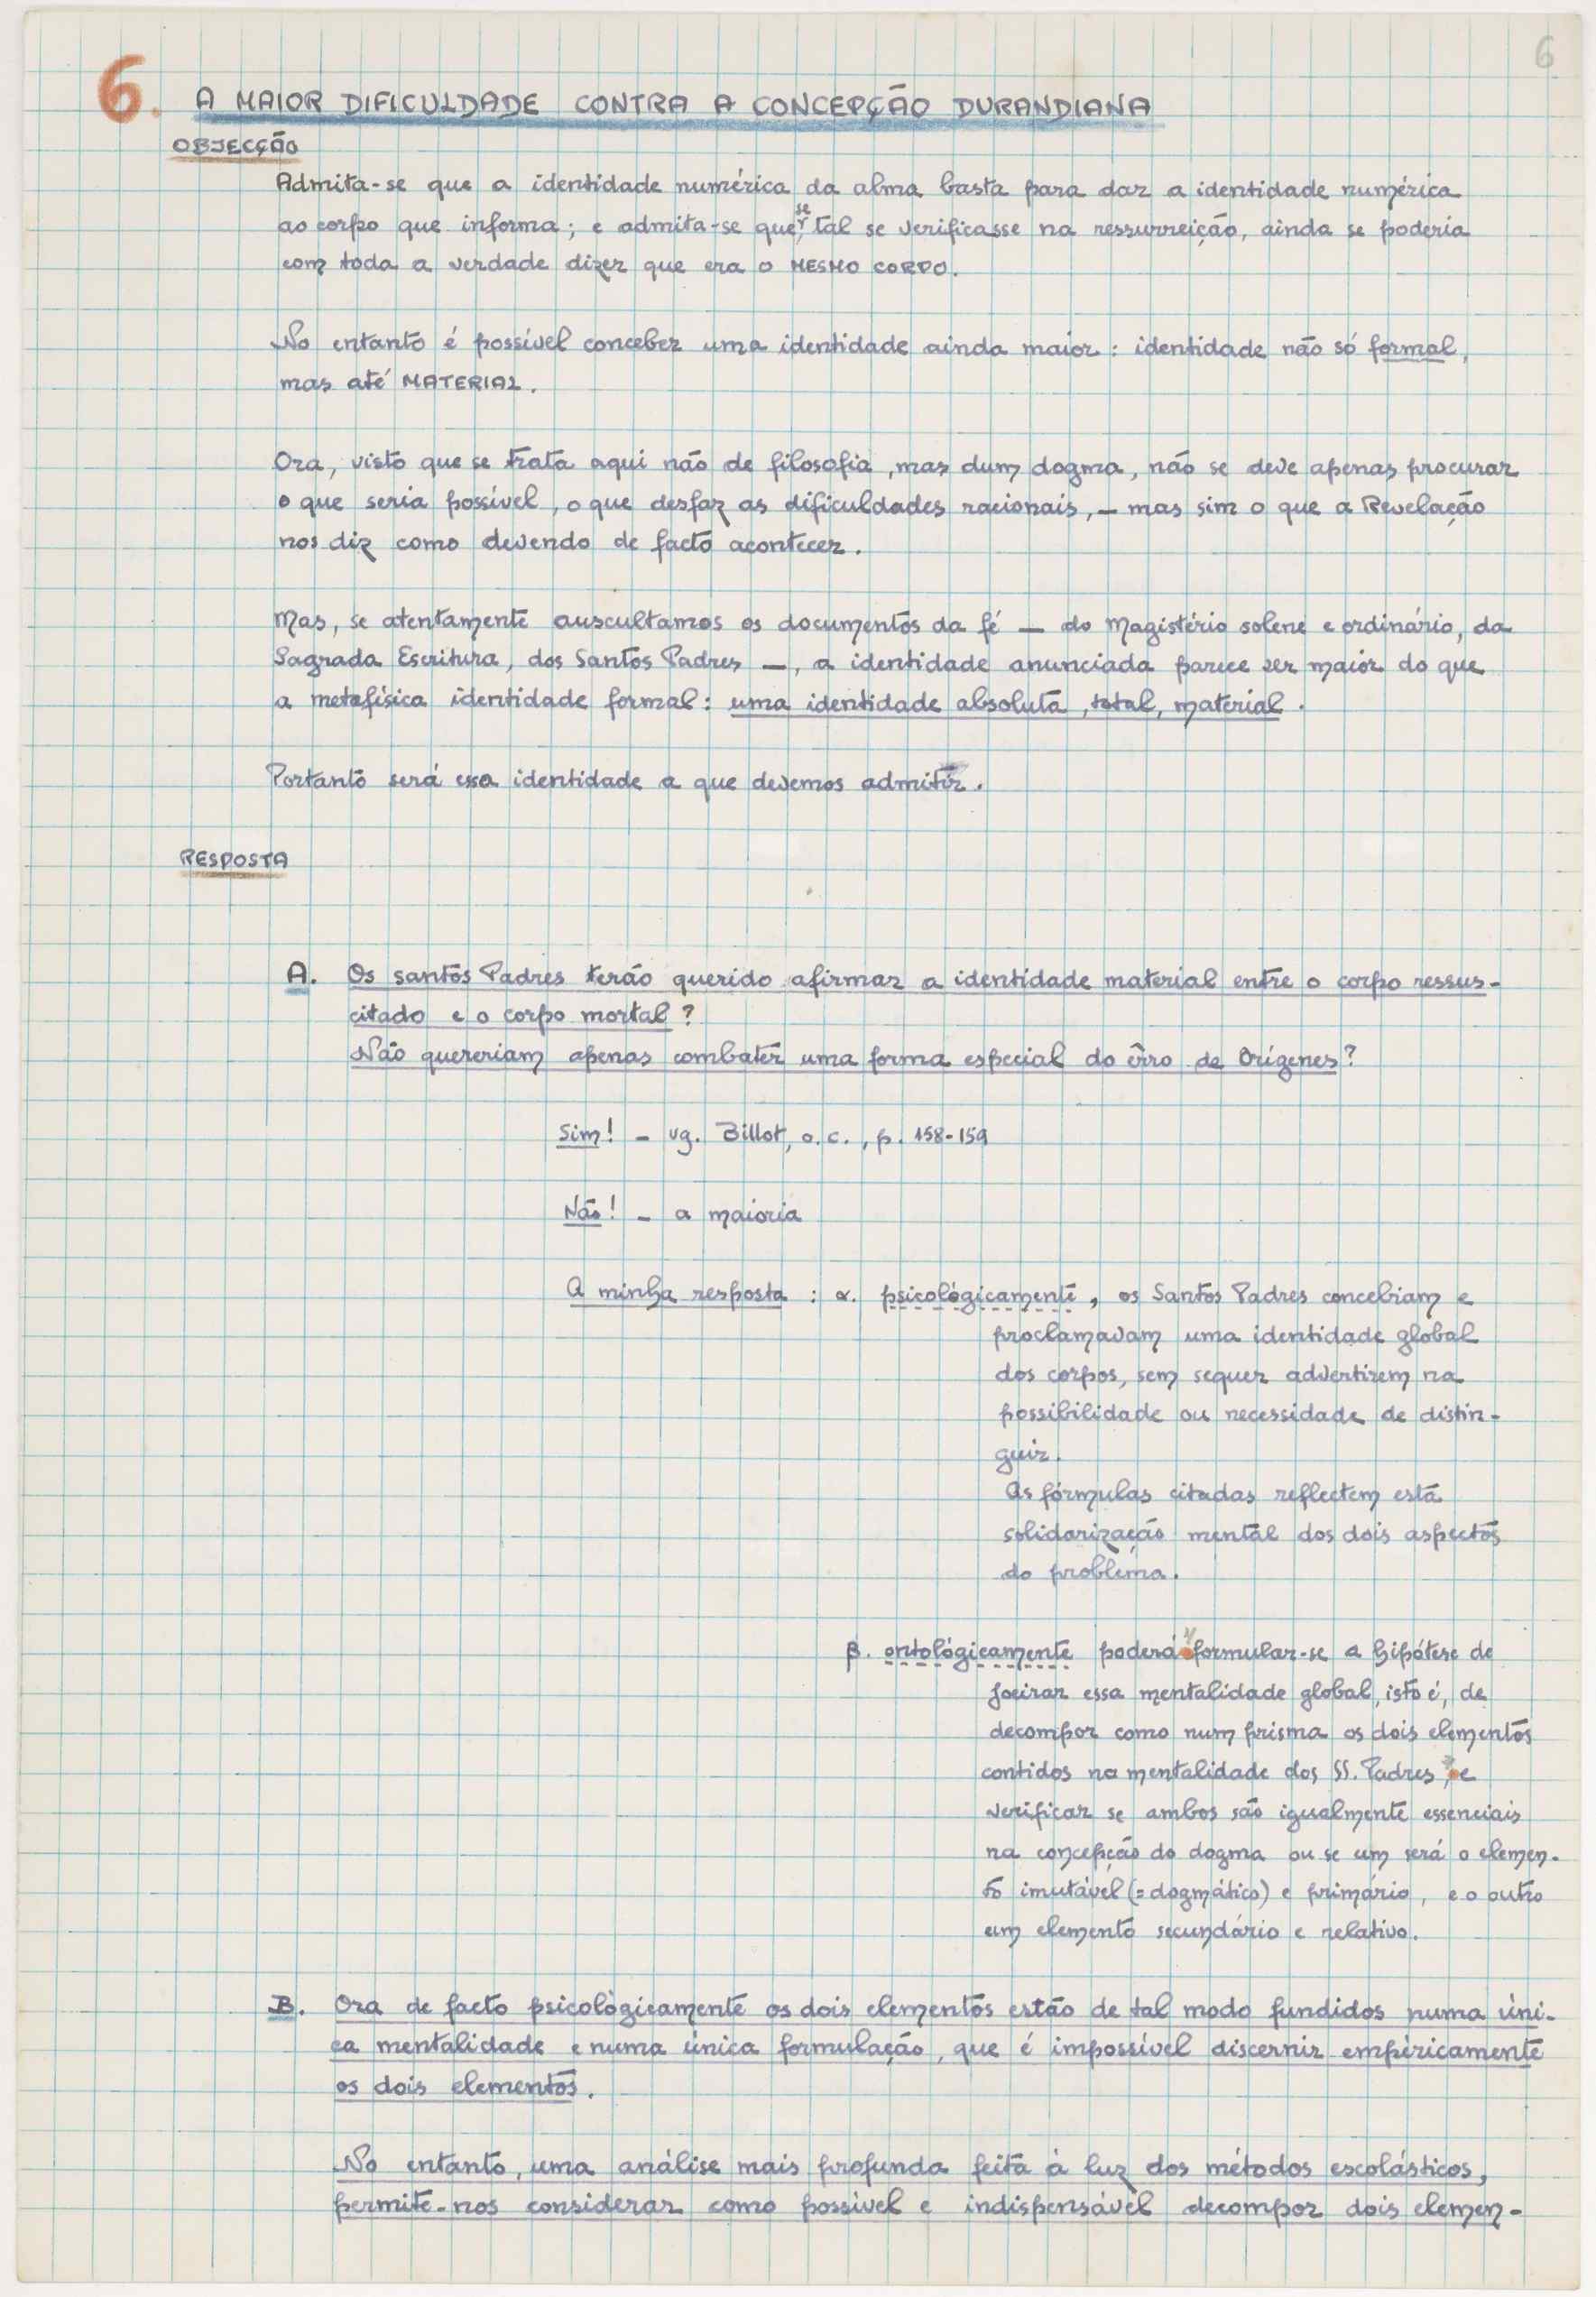 6
6. A MAIOR DIFICULDADE CONTRA A CONCEPÇÃO DURANDIANA
OBJECÇÃO
Admita-se que a identidade numérica da alma basta para dar a identidade numérica
ao corpo que informa; e admita-se que, se tal se verificasse na ressurreição, ainda se poderia
com toda a verdade dizer que era o MESMO CORPO.
No entanto é possível conceber uma identidade ainda maior: identidade não só formal,
mas até MATERIAL.
Ora, visto que se trata aqui não de filosofia, mas dum dogma, não se deve apenas procurar
o que seria possível, o que desfaz as dificuldades racionais, — mas sim o que a Revelação
nos diz como devendo de facto acontecer.
Mas, se atentamente auscultamos os documentos da fé — do Magistério solene e ordinário, da
Sagrada Escritura, dos Santos Padres —, a identidade anunciada parece ser maior do que
a metafísica identidade formal: uma identidade absoluta, total, material.
Portanto será essa identidade a que devemos admitir.
RESPOSTA
A. Os santos Padres terão querido afirmar a identidade material entre o corpo ressus-
citado e o corpo mortal?
Não quereriam apenas combater uma forma especial do êrro de Orígenes?
Sim! - vg. Billot, o.c., p. 158-159
Não! - a maioria
A minha resposta: α. psicològicamente, os Santos Padres concebiam e
proclamavam uma identidade global
dos corpos, sem sequer advertirem na
possibilidade ou necessidade de distin-
guir.
As fórmulas citadas reflectem esta
solidarização mental dos dois aspectos
do problema.
β. ontològicamente poderá formular-se a hipótese de
joeirar essa mentalidade global, isto é, de
decompor como num prisma os dois elementos
contidos na mentalidade dos SS. Padres, e
verificar se ambos são igualmente essenciais
na concepção do dogma ou se um será o elemen-
to imutável (= dogmático) e primário, e o outro
um elemento secundário e relativo.
B. Ora de facto psicològicamente os dois elementos estão de tal modo fundidos numa úni-
ca mentalidade e numa única formulação, que é impossível discernir empìricamente
os dois elementos.
No entanto, uma análise mais profunda feita à luz dos métodos escolásticos,
permite-nos considerar como possível e indispensável decompor dois elemen-